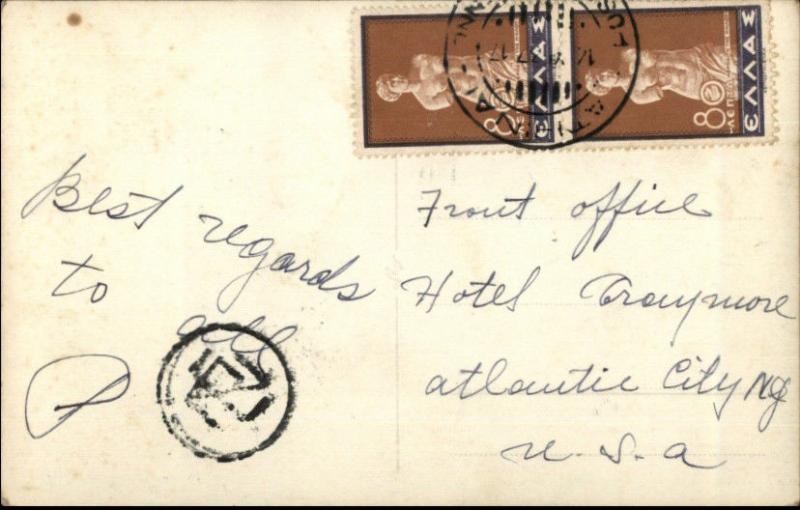 ΕΛΛΑΣ
80
ΛΕΠΤΑ
ΕΛΛΑΣ
80
ΛΕΠΤΑ
Best regards
to all
Front office
Hotel Traymore
Atlantic City NJ
U.S.A